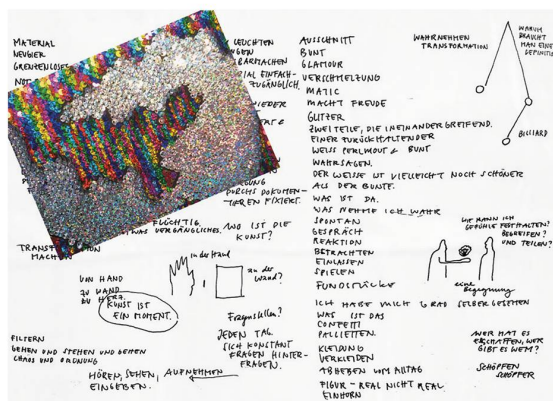 MATERIAL
NEUGIER
GRENZENLOSE
LEUCHTEN
BARMACHEN
IAL EINFACH-
ZUGÄNGLICH.
IEDER
DURCHS DOKUMEN-
TIEREN FIXIERT.
FLÜCHTIG.
WAS VERGÄNGLICHES.
WO IST DIE
KUNST?
TRANSF
MACH
VON HAND
ZU WAND
ZU HERZ.
KUNST IST
EIN MOMENT.
in der Hand
an der
Wand?
Fragestellen?
JEDEN TAG.
SICH KONSTANT
FRAGEN HINTER-
FRAGEN.
FILTERN
GEHEN UND STEHEN UND GEHEN
CHAOS UND ORDNUNG
HÖREN, SEHEN, AUFNEHMEN
EINGEBEN.
AUSSCHNITT
BUNT
GLAMOUR
VERSCHMELZUNG
MATIC
MACHT FREUDE
GLITZER
ZWEI TEILE, DIE INEINANDERGREIFEND.
EINER ZURÜCKHALTENDER
WEISS PERLMOUT & BUNT
WAHRSAGEN.
DER WEISSE IST VIELLEICHT NOCH SCHÖNER
ALS DER BUNTE.
WAS IST DA.
WAS NEHME ICH WAHR
SPONTAN
GESPRÄCH
REAKTION
BETRACHTEN
EINLASSEN
SPIELEN
FUNDSTÜCKE
ICH HABE MICH GRAD SELBER GESEHEN
WAS IST DAS
CONFETTI
PAILLIETTEN.
KLEIDUNG
VERKLEIDEN
ABHEBEN VOM ALLTAG
FIGUR - REAL NICHT REAL
EINHORN
WAHRNEHMEN
TRANSFORMATION
WARUM
BRAUCHT
MAN EINE
DEFINITION
BILLIARD
WIE KANN ICH
GEFÜHLE FESTHALTEN?
BEGREIFEN?
UND TEILEN?
eine
Begegnung
WER HAT ES
ERSCHAFFEN, WER
GIBT ES WEM?
SCHÖPFEN
SCHÖPFER